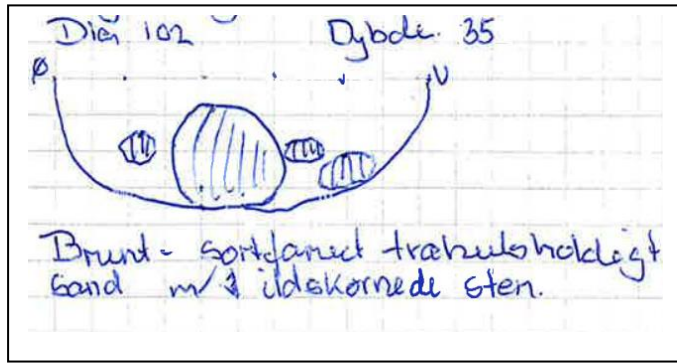 Dia 102 Dybde. 35
Ø V
Brunt- sortfarvet trækulsholdigt
sand m/ ildskørnede sten.